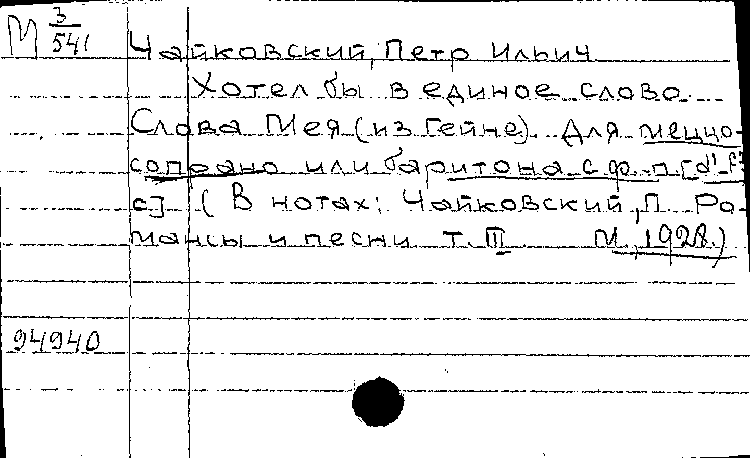 М 3/541
Чайковский, Петр Ильич
Хотел бы в единое слово.
Слова Мея (из Гейне). Для меццо-
сопрано или баритона с ф.-п. [d¹-f²
с] (В нотах: Чайковский, П. Ро-
мансы и песни т. III М., 1928.)
94940